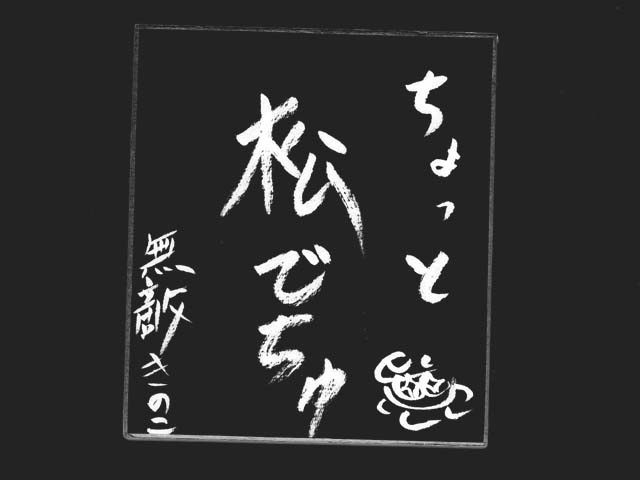 ちょっと
松でちゅ
無敵きのこ